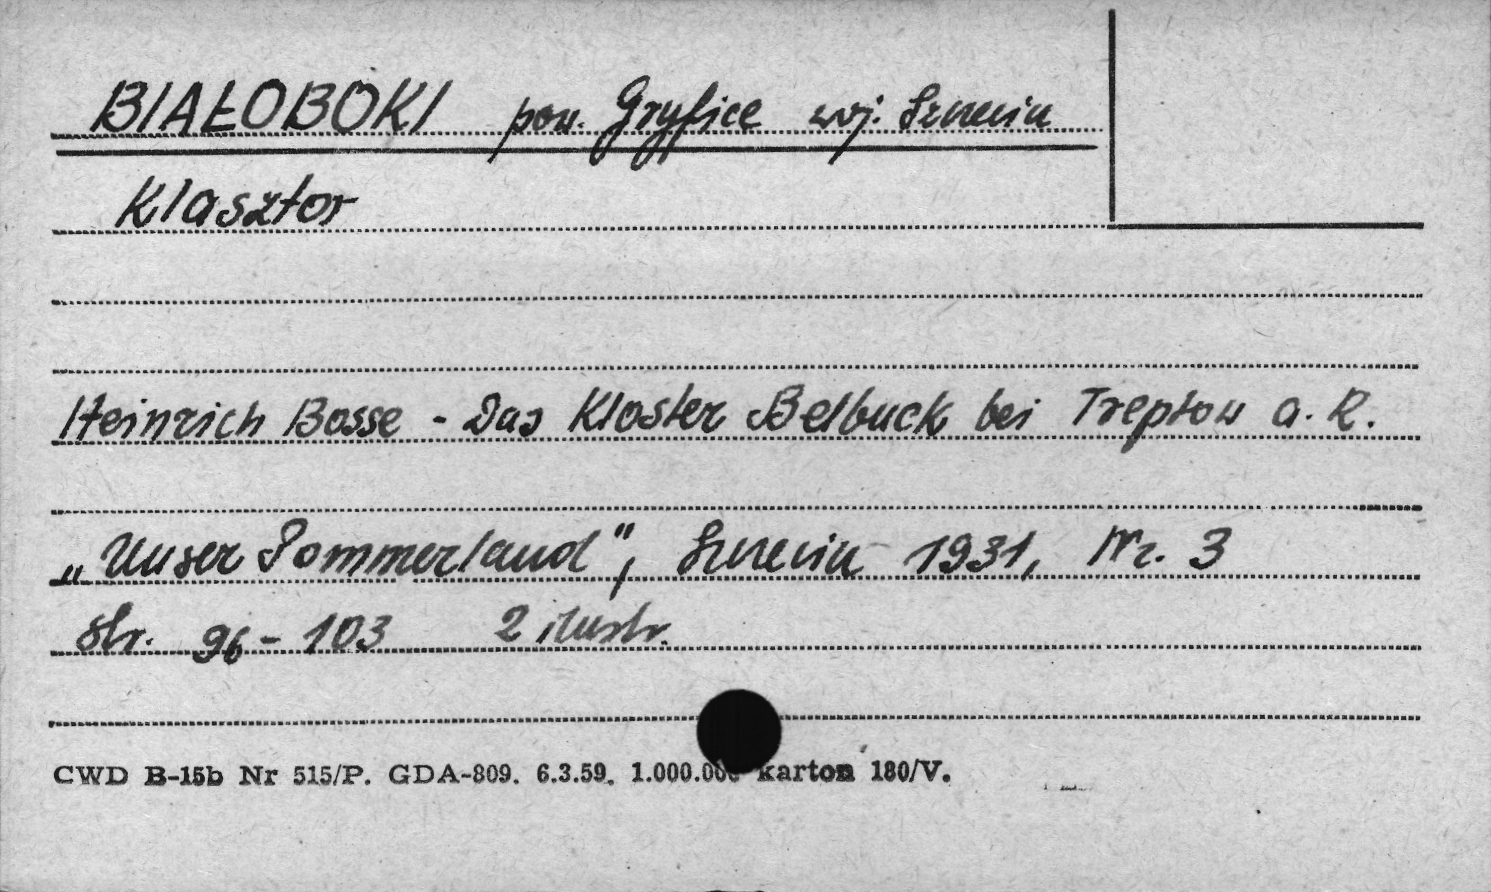 BIAŁOBOKI pow. Gryfice woj. Szczecin
Klasztor
Heinrich Bosse - Das Kloster Belbuck bei Treptow a. R.
„Unser Pommerland", Szczecin 1931, Nr. 3
str. 96-103 2 ilustr.
CWD B-15b Nr 515/P. GDA-809. 6.3.59. 1.000.000 karton 180/V.